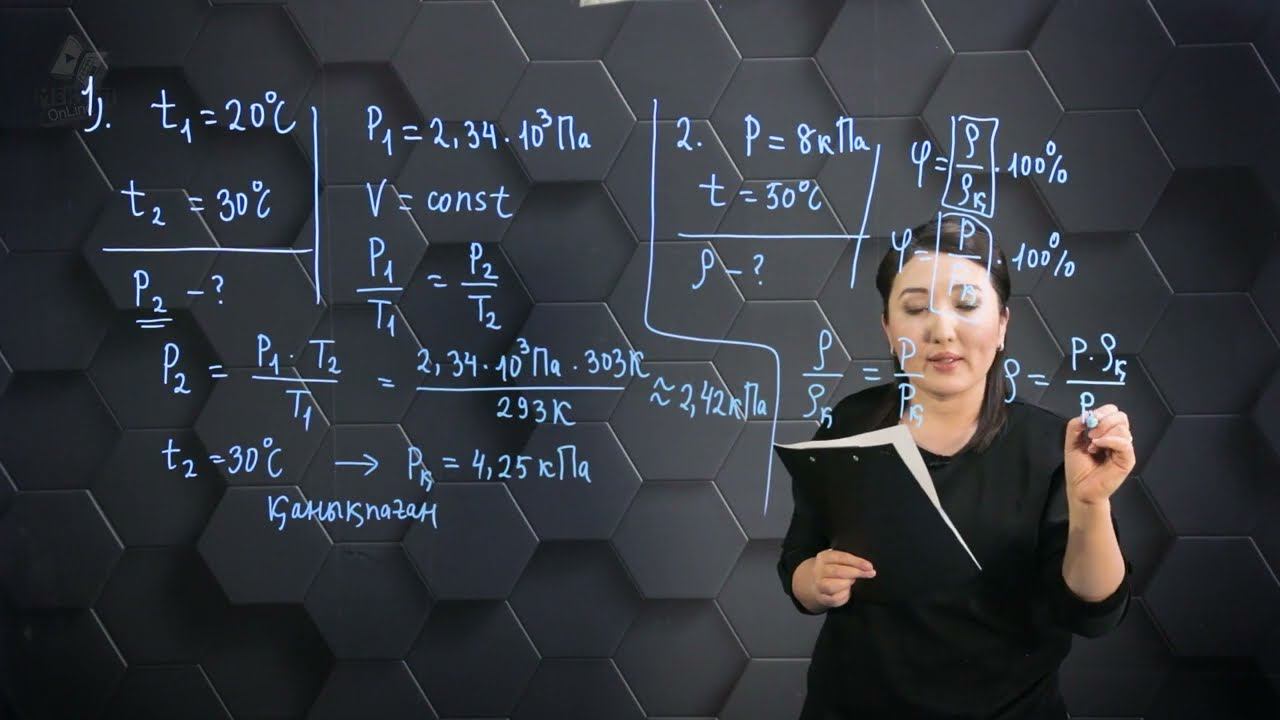 1).
t₁ = 20°C
t₂ = 30°C
P₂ - ?
P₁ = 2,34 · 10³ Па
V = const
P₁/T₁ = P₂/T₂
P₂ = P₁ · T₂/T₁ = 2,34 · 10³ Па · 303K/293K ≈ 2,42 кПа
t₂ = 30°C → Pқ = 4,25 кПа
Қанықпаған
2. P = 8 кПа
t = 50°C
ρ - ?
φ = ρ/ρқ · 100%
φ = P/Pқ · 100%
ρ/ρқ = P/Pқ
ρ = P · ρқ/P
OnLine